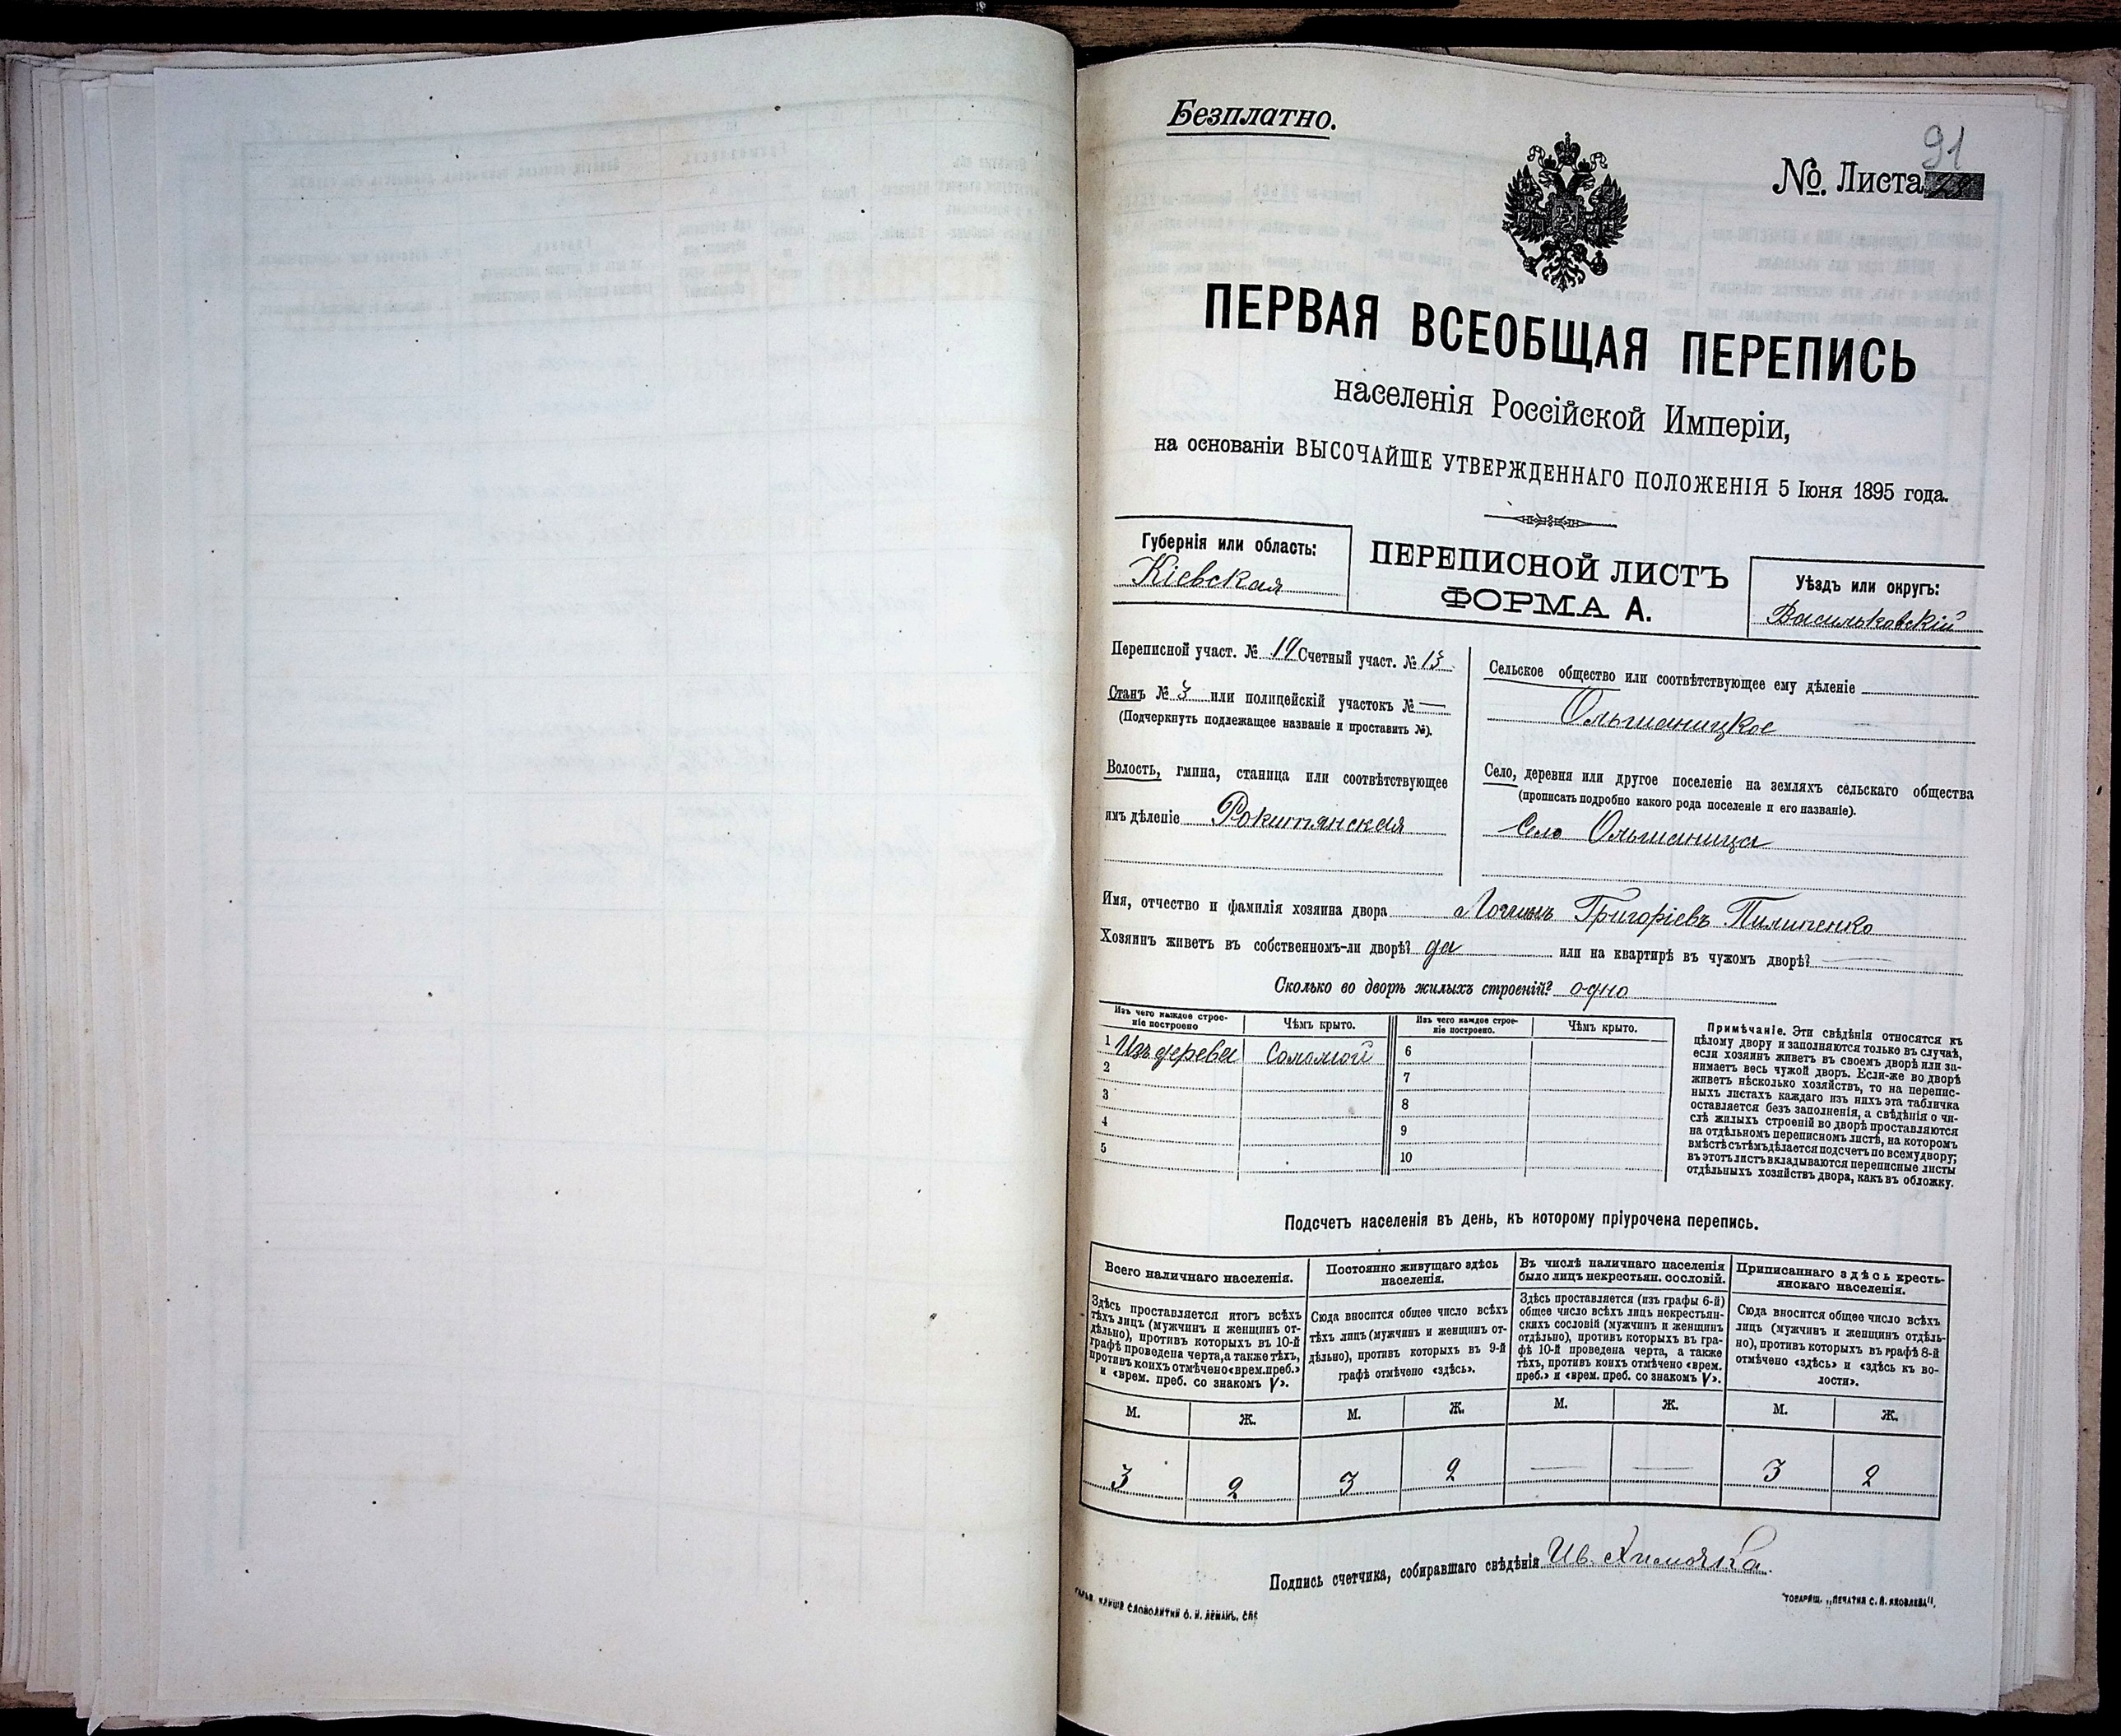 Безплатно.
91
№. Листа 28
ПЕРВАЯ ВСЕОБЩАЯ ПЕРЕПИСЬ
населенія Россійской Имперіи,
на основаніи ВЫСОЧАЙШЕ УТВЕРЖДЕННАГО ПОЛОЖЕНІЯ 5 Іюня 1895 года.
Губернія или область:
Кіевская
ПЕРЕПИСНОЙ ЛИСТЪ
ФОРМА А.
Уѣздъ или округъ:
Васильковскій
Переписной участ. № 19 Счетный участ. № 13
Станъ № 3 или полицейскій участокъ № —
(Подчеркнуть подлежащее названіе и проставить №).
Волость, гмина, станица или соотвѣтствующее
имъ дѣленіе Рокитянская
Сельское общество или соотвѣтствующее ему дѣленіе
Ольшаницкое
Село, деревня или другое поселеніе на земляхъ сельскаго общества
(прописать подробно какого рода поселеніе и его названіе).
Село Ольшаница
Имя, отчество и фамилія хозяина двора Григоріевъ Пилипенко
Хозяинъ живетъ въ собственномъ-ли дворѣ? да или на квартирѣ въ чужомъ дворѣ? —
Сколько во дворѣ жилыхъ строеній? одно
Изъ чего каждое строе-
ніе построено
Чѣмъ крыто.
Изъ чего каждое строе-
ніе построено.
Чѣмъ крыто.
1 Изъ дерева Соломой 6
2 7
3 8
4 9
5 10
Примѣчаніе. Эти свѣдѣнія относятся къ
цѣлому двору и заполняются только въ случаѣ,
если хозяинъ живетъ въ своемъ дворѣ или за-
нимаетъ весь чужой дворъ. Если-же во дворѣ
живетъ нѣсколько хозяйствъ, то на перепис-
ныхъ листахъ каждаго изъ нихъ эта табличка
оставляется безъ заполненія, а свѣдѣнія о чи-
слѣ жилыхъ строеній во дворѣ проставляются
на отдѣльномъ переписномъ листѣ, на которомъ
вмѣстѣ съ тѣмъ дѣлается подсчетъ по всему двору;
въ этотъ листъ вкладываются переписные листы
отдѣльныхъ хозяйствъ двора, какъ въ обложку.
Подсчетъ населенія въ день, къ которому пріурочена перепись.
Всего наличнаго населенія.
Здѣсь проставляется итогъ всѣхъ
тѣхъ лицъ (мужчинъ и женщинъ от-
дѣльно), противъ которыхъ въ 10-й
графѣ проведена черта, а также тѣхъ,
противъ коихъ отмѣчено «врем. преб.»
и «врем. преб. со знакомъ V».
Постоянно живущаго здѣсь
населенія.
Сюда вносится общее число всѣхъ
тѣхъ лицъ (мужчинъ и женщинъ от-
дѣльно), противъ которыхъ въ 9-й
графѣ отмѣчено «здѣсь».
Въ числѣ наличнаго населенія
было лицъ некрестьян. сословій.
Здѣсь проставляется (изъ графы 6-й)
общее число всѣхъ лицъ некрестьян-
скихъ сословій (мужчинъ и женщинъ
отдѣльно), противъ которыхъ въ гра-
фѣ 10-й проведена черта, а также
тѣхъ, противъ коихъ отмѣчено «врем.
преб.» и «врем. преб. со знакомъ V».
Приписаннаго здѣсь кресть-
янскаго населенія.
Сюда вносится общее число всѣхъ
лицъ (мужчинъ и женщинъ отдѣль-
но), противъ которыхъ въ графѣ 8-й
отмѣчено «здѣсь» и «здѣсь къ во-
лости».
М. Ж. М. Ж. М. Ж. М. Ж.
3 2 3 2 — — 3 2
Подпись счетчика, собиравшаго свѣдѣнія Ив.
СЛОВОЛИТНИ О. И. ЛЕМАНЪ, СПБ
ТОВАРИЩ. „ПЕЧАТНЯ С. П. ЯКОВЛЕВА".